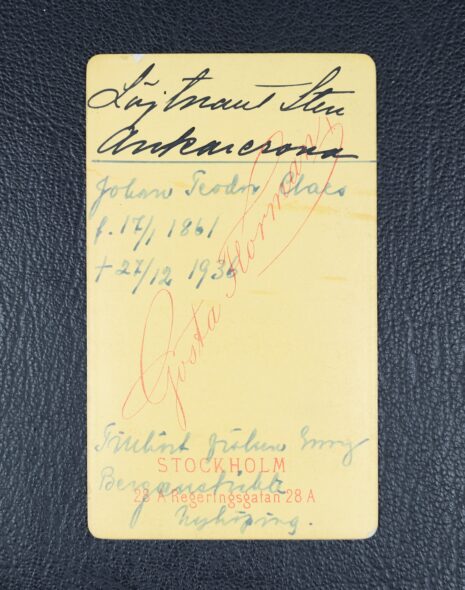 Löjtnant Sten
Ankarcrona
Johan Teodor Claes
f. 17/1 1861
† 27/12 1936
Gösta Florman
Tillhört fröken
STOCKHOLM
28 A Regeringsgatan 28 A
Nyköping.